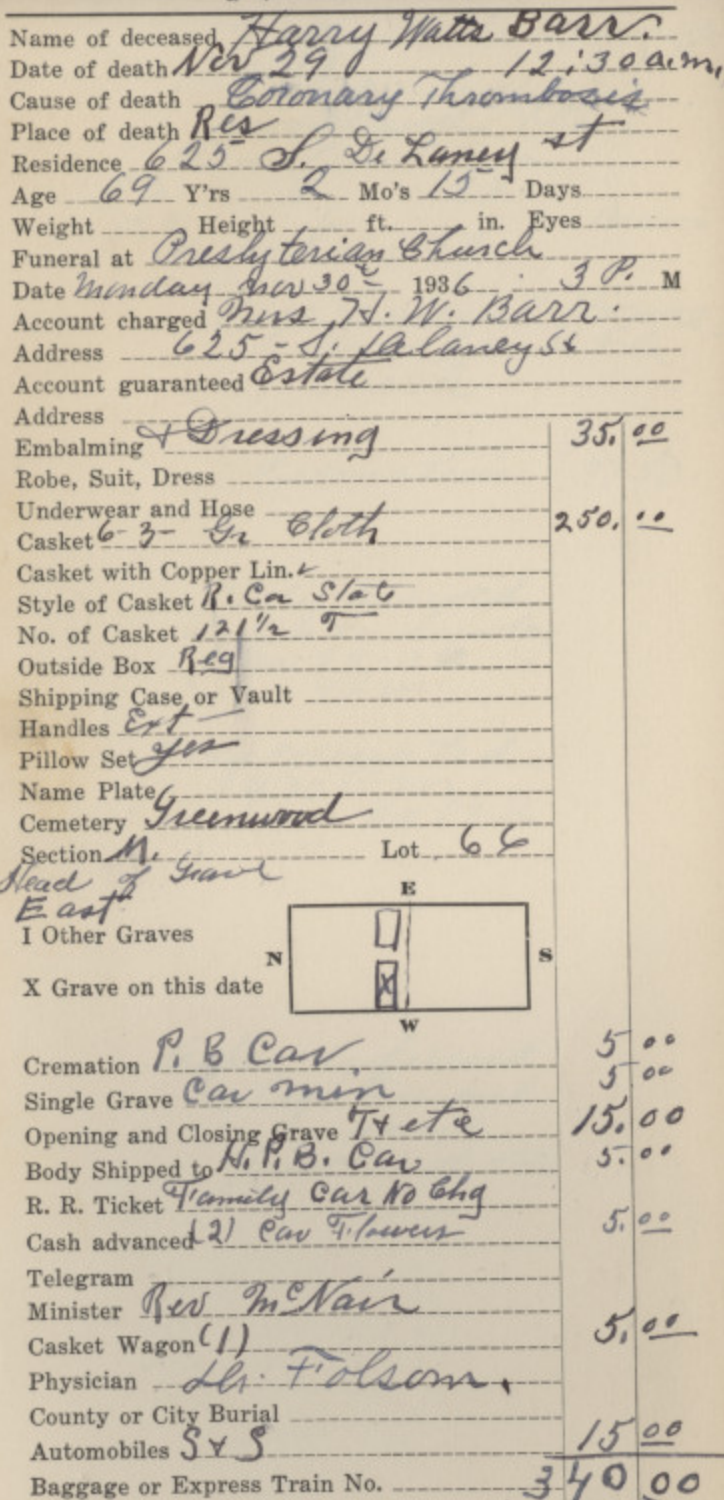 Name of deceased Harry Watts Barr.
Date of death Nov 29 12:30 a.m.
Cause of death Coronary Thrombosis
Place of death Res
Residence 625 S. De Laney st
Age 69 Y'rs 2 Mo's 15 Days
Weight Height ft. in. Eyes
Funeral at Presbyterian Church
Date Monday Nov 30 1936 3 P. M
Account charged Mrs H. W. Barr.
Address 625 - S. Delaney St
Account guaranteed Estate
Address
Embalming & Dressing 35.00
Robe, Suit, Dress
Underwear and Hose
Casket 6-3- Gr Cloth 250.00
Casket with Copper Lin.
Style of Casket R. Cor
No. of Casket 121 1/2 T
Outside Box Reg
Shipping Case or Vault
Handles Ext
Pillow Set yes
Name Plate
Cemetery Greenwood
Section M. Lot 66
Head of Grave
East
E
I Other Graves
N S
X Grave on this date X
W
Cremation P. B Car 5 00
Single Grave Car min 5 00
Opening and Closing Grave T & etc 15.00
Body Shipped to H. P. B. Car 5.00
R. R. Ticket Family Car No Chg
Cash advanced (2) Car Flowers 5.00
Telegram
Minister Rev McNair
Casket Wagon (1) 5.00
Physician Dr. Folsom.
County or City Burial
Automobiles S & S 15 00
Baggage or Express Train No. 340 00